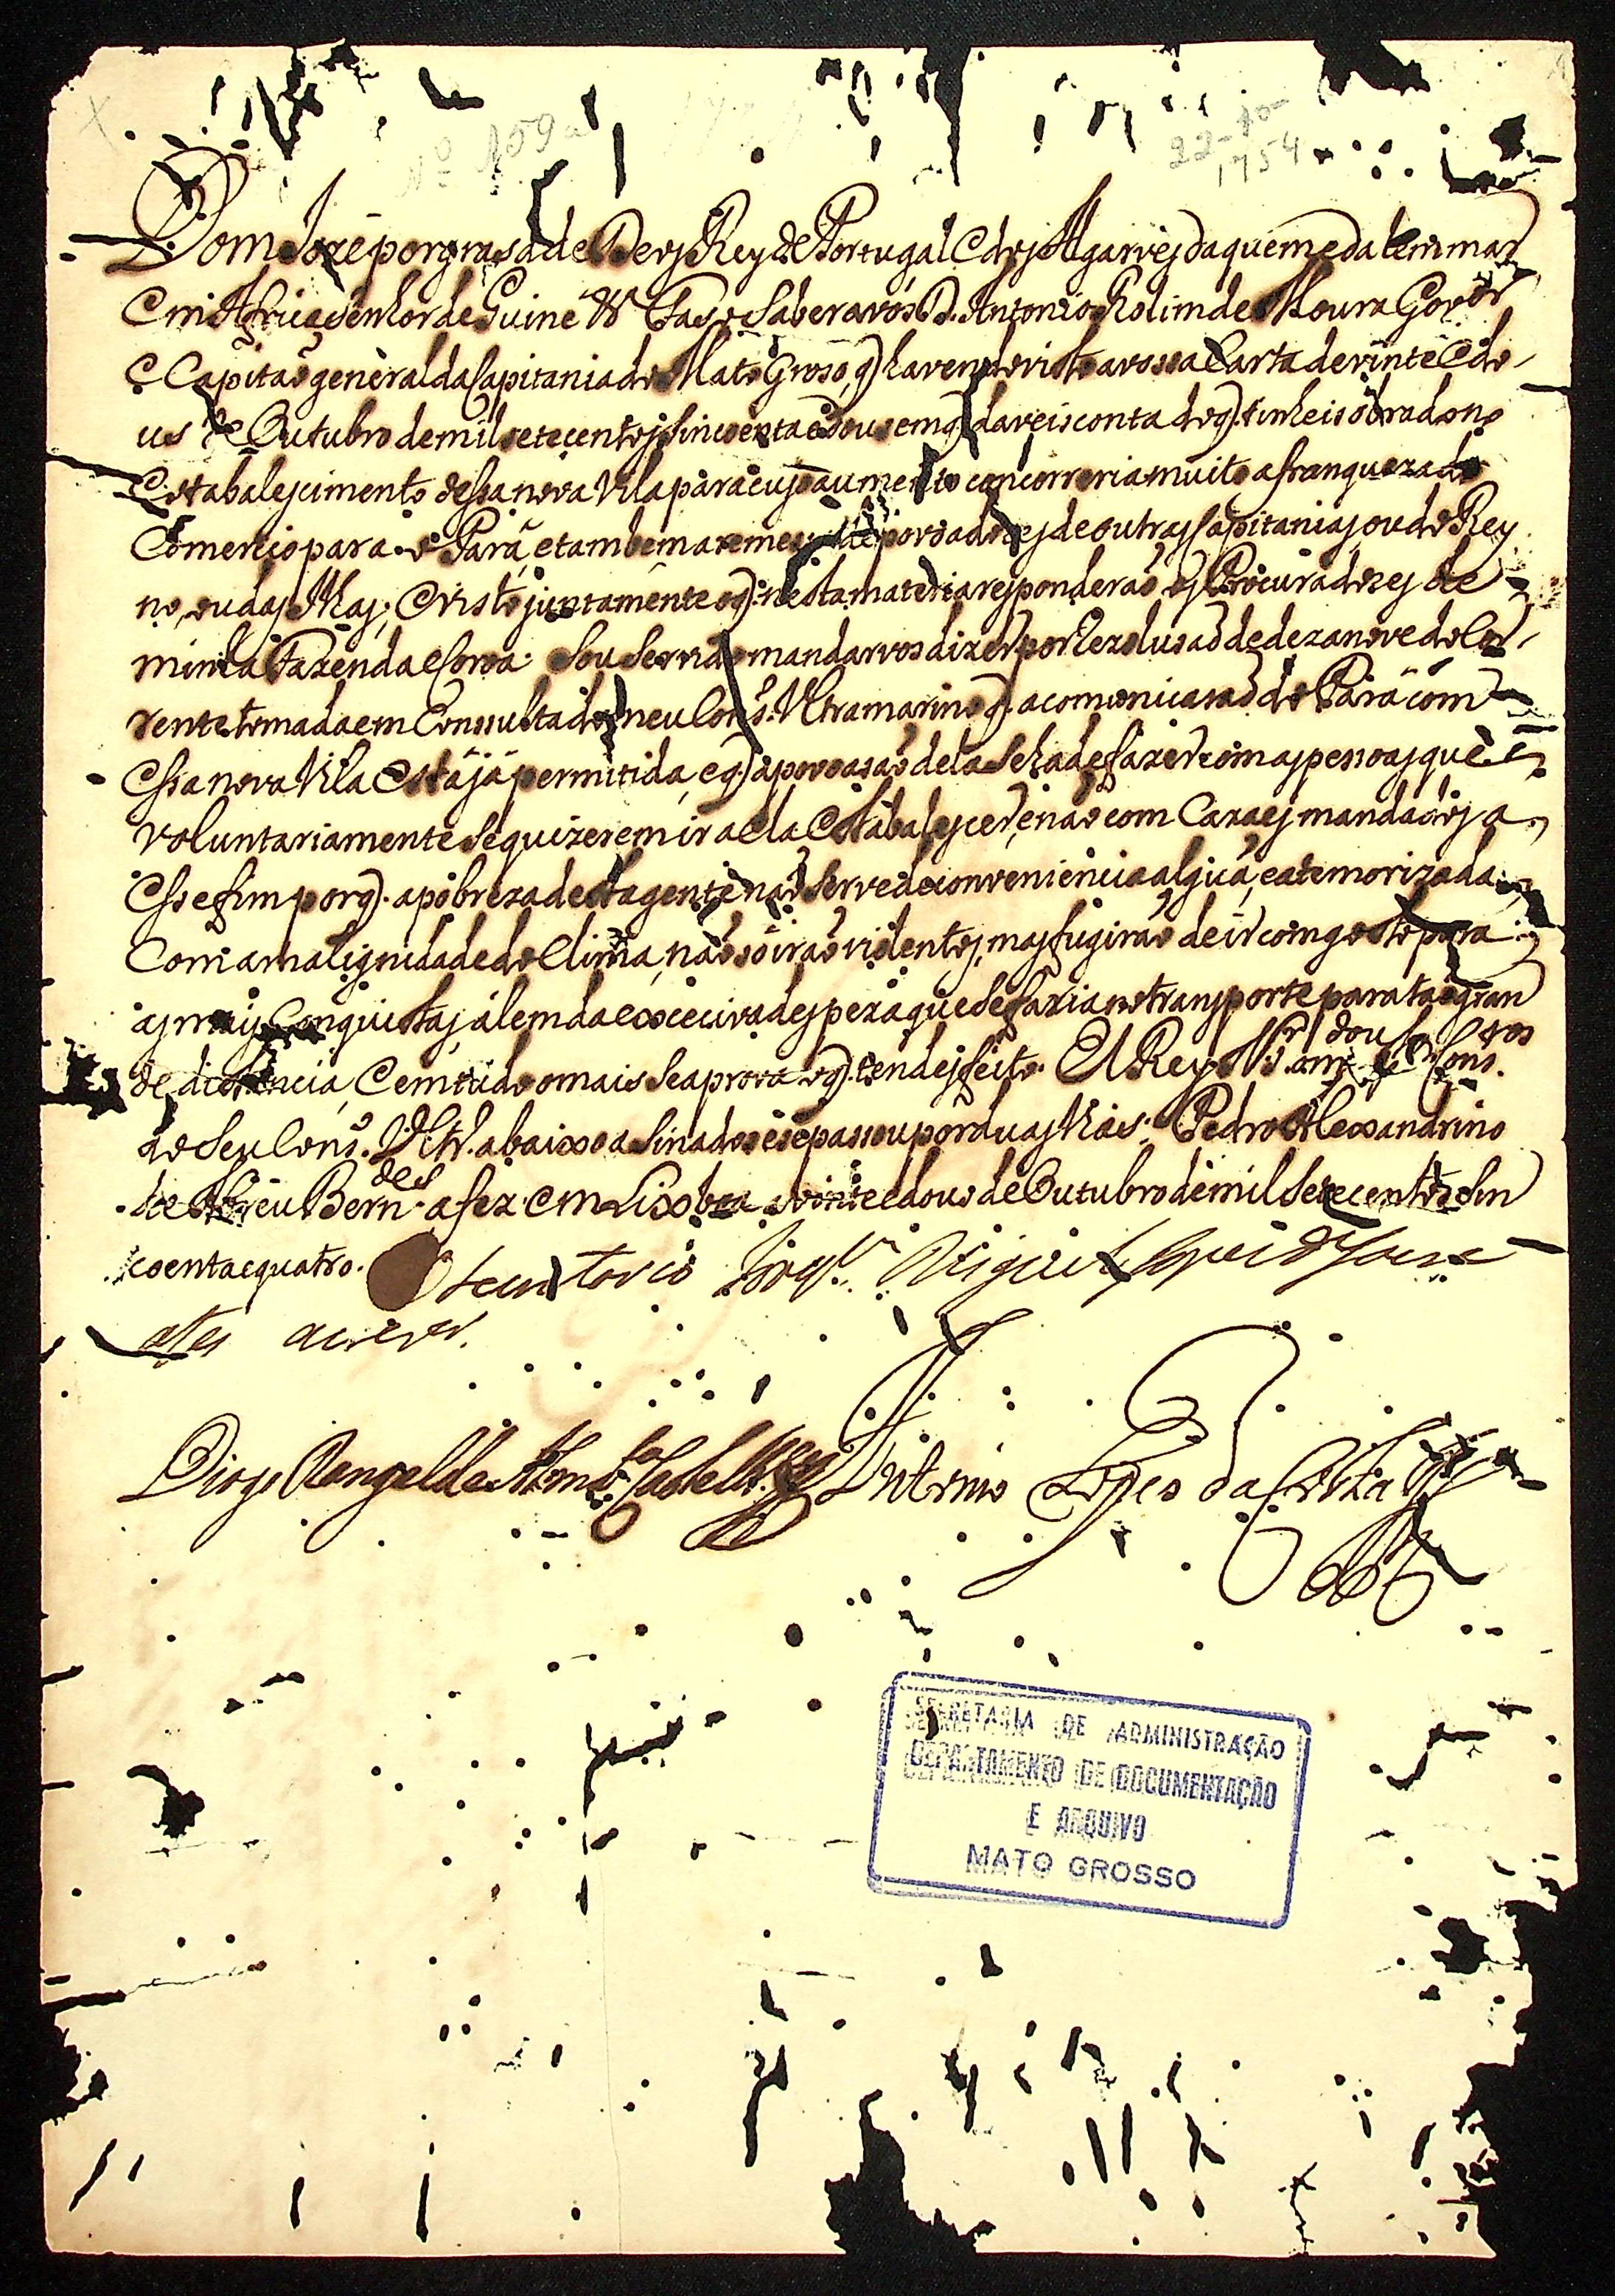 Nº 159a
22-10-
1754
Dom Joze por grasa de Deos Rey de Portugal e dos Algarves daquem e dalem mar
em Africa senhor de Guine &ª Faso saber avos D. Antonio Rolim de Moura Gov.or
e Capitaõ general da Capitania do Mato Groso, q' havendo visto avossa Carta de vinte e do-
us de Outubro de mil setecentos sincoenta e dous em q' daveis conta do q'. tinheis obrado no
Estabalecimento dessa nova Vila para cujo aumento concorreria muito a franqueza do
Comercio para o Pará, e tambem a remeter povoadores de outras Capitanias, ou do Rey
no, ou das Ilhas; E visto juntamente o q'. nesta materia responderaõ os Procuradores de
minha Fazenda e Coroa: Sou Servido mandarvos dizer por Rezolusaõ de dezanove do Cor-
rente tomada em Consulta do meu Cons.º Ultramarino q'. a comonicasaõ do Pará com
essa nova Vila está já permitida, e q'. a povoasaõ dela se ha de fazer com as pessoas que
voluntariamente se quizerem ir a ela Estabalecer, e naõ com Cazaes mandados a
esse fim porq'. a pobreza desta gente naõ serve de conveniencia algua, e atemorizada
com a malignidade do Clima, naõ só iraõ violentos, mas fugiraõ de ir com gosto para
as mais Conquistas, alem da exceciva despeza que se faria no transporte para taõ gran
de distancia, E em tudo o mais se aprova o q'. tendes feito. El Rey N. S.r o mandou p.los Cons.ros
do seu Cons.º Ultr. abaixo asinados e se pasou por duas Vias. Pedro Alexandrino
de Abreu Bern.des a fez em Lixboa a vinte e dous de Outubro de mil setecentos sin
coenta e quatro. O Secretario Joaq.m Miguel Lopes de Lavre
a fes escrever.
Diogo Rangel de Alm.da Castel Br.co Antonio Lopes da Costa
SECRETARIA DE ADMINISTRAÇÃO
DEPARTAMENTO DE DOCUMENTAÇÃO
E ARQUIVO
MATO GROSSO